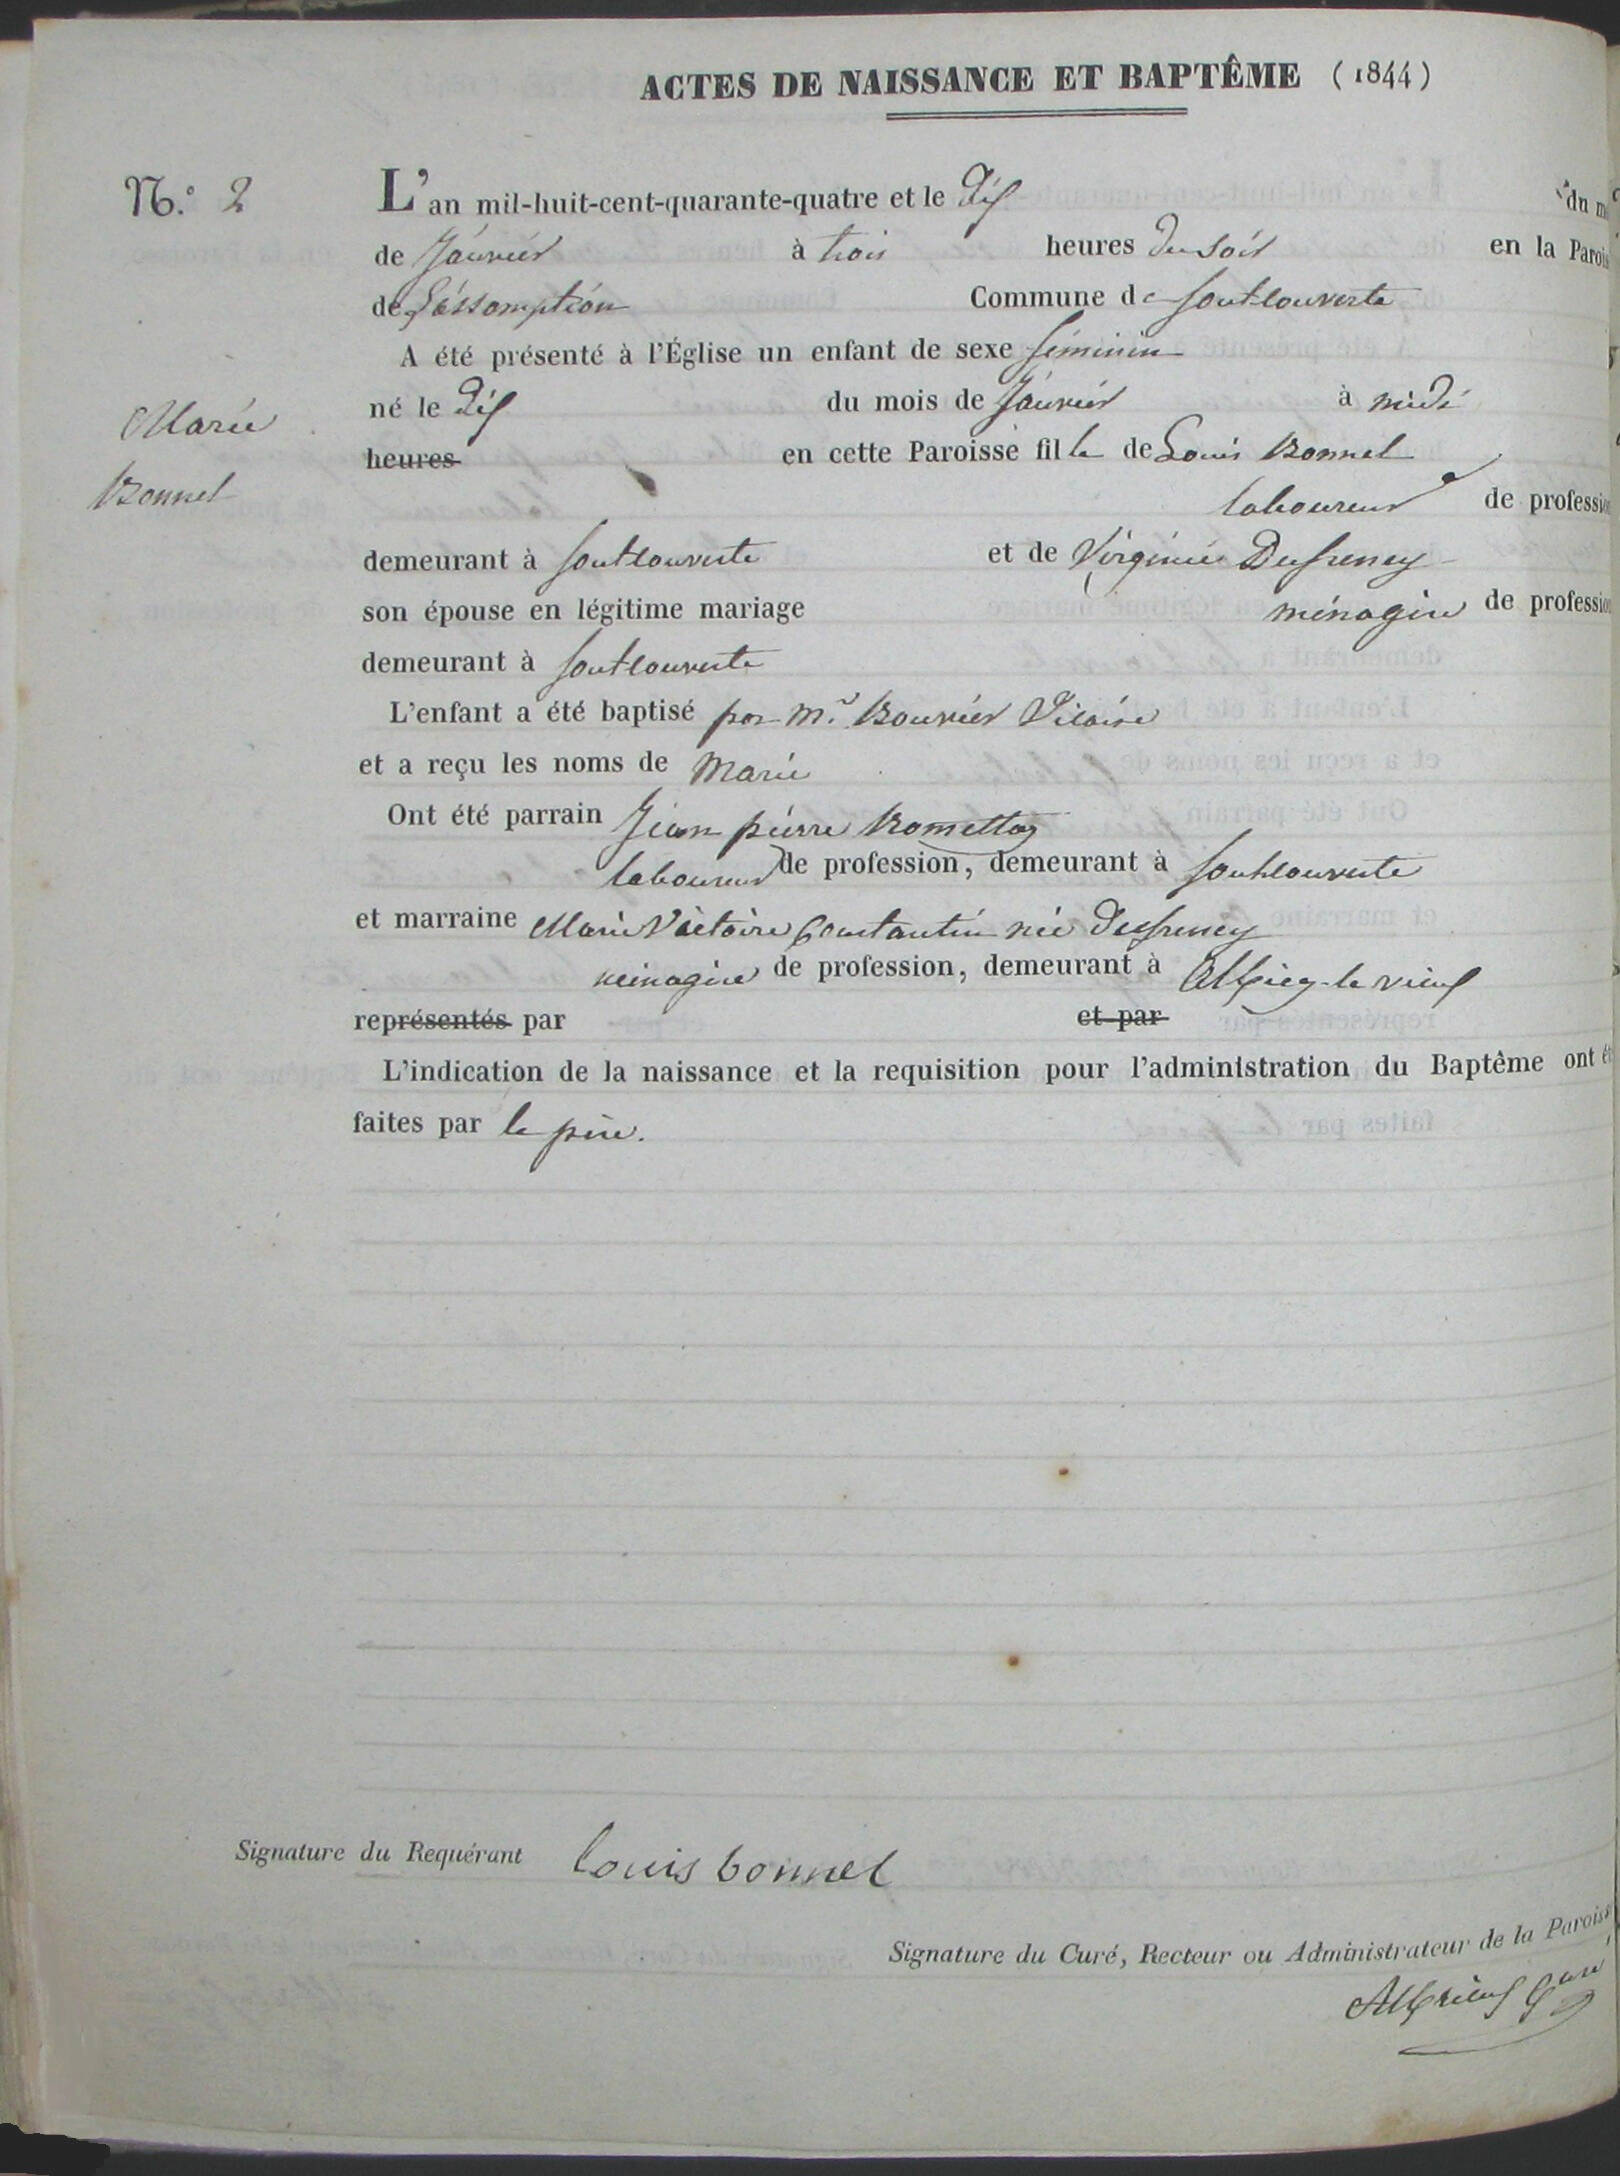 ACTES DE NAISSANCE ET BAPTÊME (1844)
N.° 2
L'an mil-huit-cent-quarante-quatre et le Dix du m
de Janvier à trois heures du soir en la Parois
de L'assomption Commune de
A été présenté à l'Église un enfant de sexe féminin
né le Dix du mois de Janvier à midi
Marie
heures en cette Paroisse fille de Louis Bonnel
Bonnel
laboureur de profession
demeurant à et de Virginie Dufreney
son épouse en légitime mariage ménagère de profession
demeurant à
L'enfant a été baptisé par Mr. Bouvier Vicaire
et a reçu les noms de Marie
Ont été parrain Jean pierre
laboureur de profession, demeurant à
et marraine Marie Victoire Constantin née Dufreney
ménagère de profession, demeurant à le vieux
représentés par et par
L'indication de la naissance et la requisition pour l'administration du Baptême ont ét
faites par le père.
Signature du Requérant Louis bonnel
Signature du Curé, Recteur ou Administrateur de la Paroiss